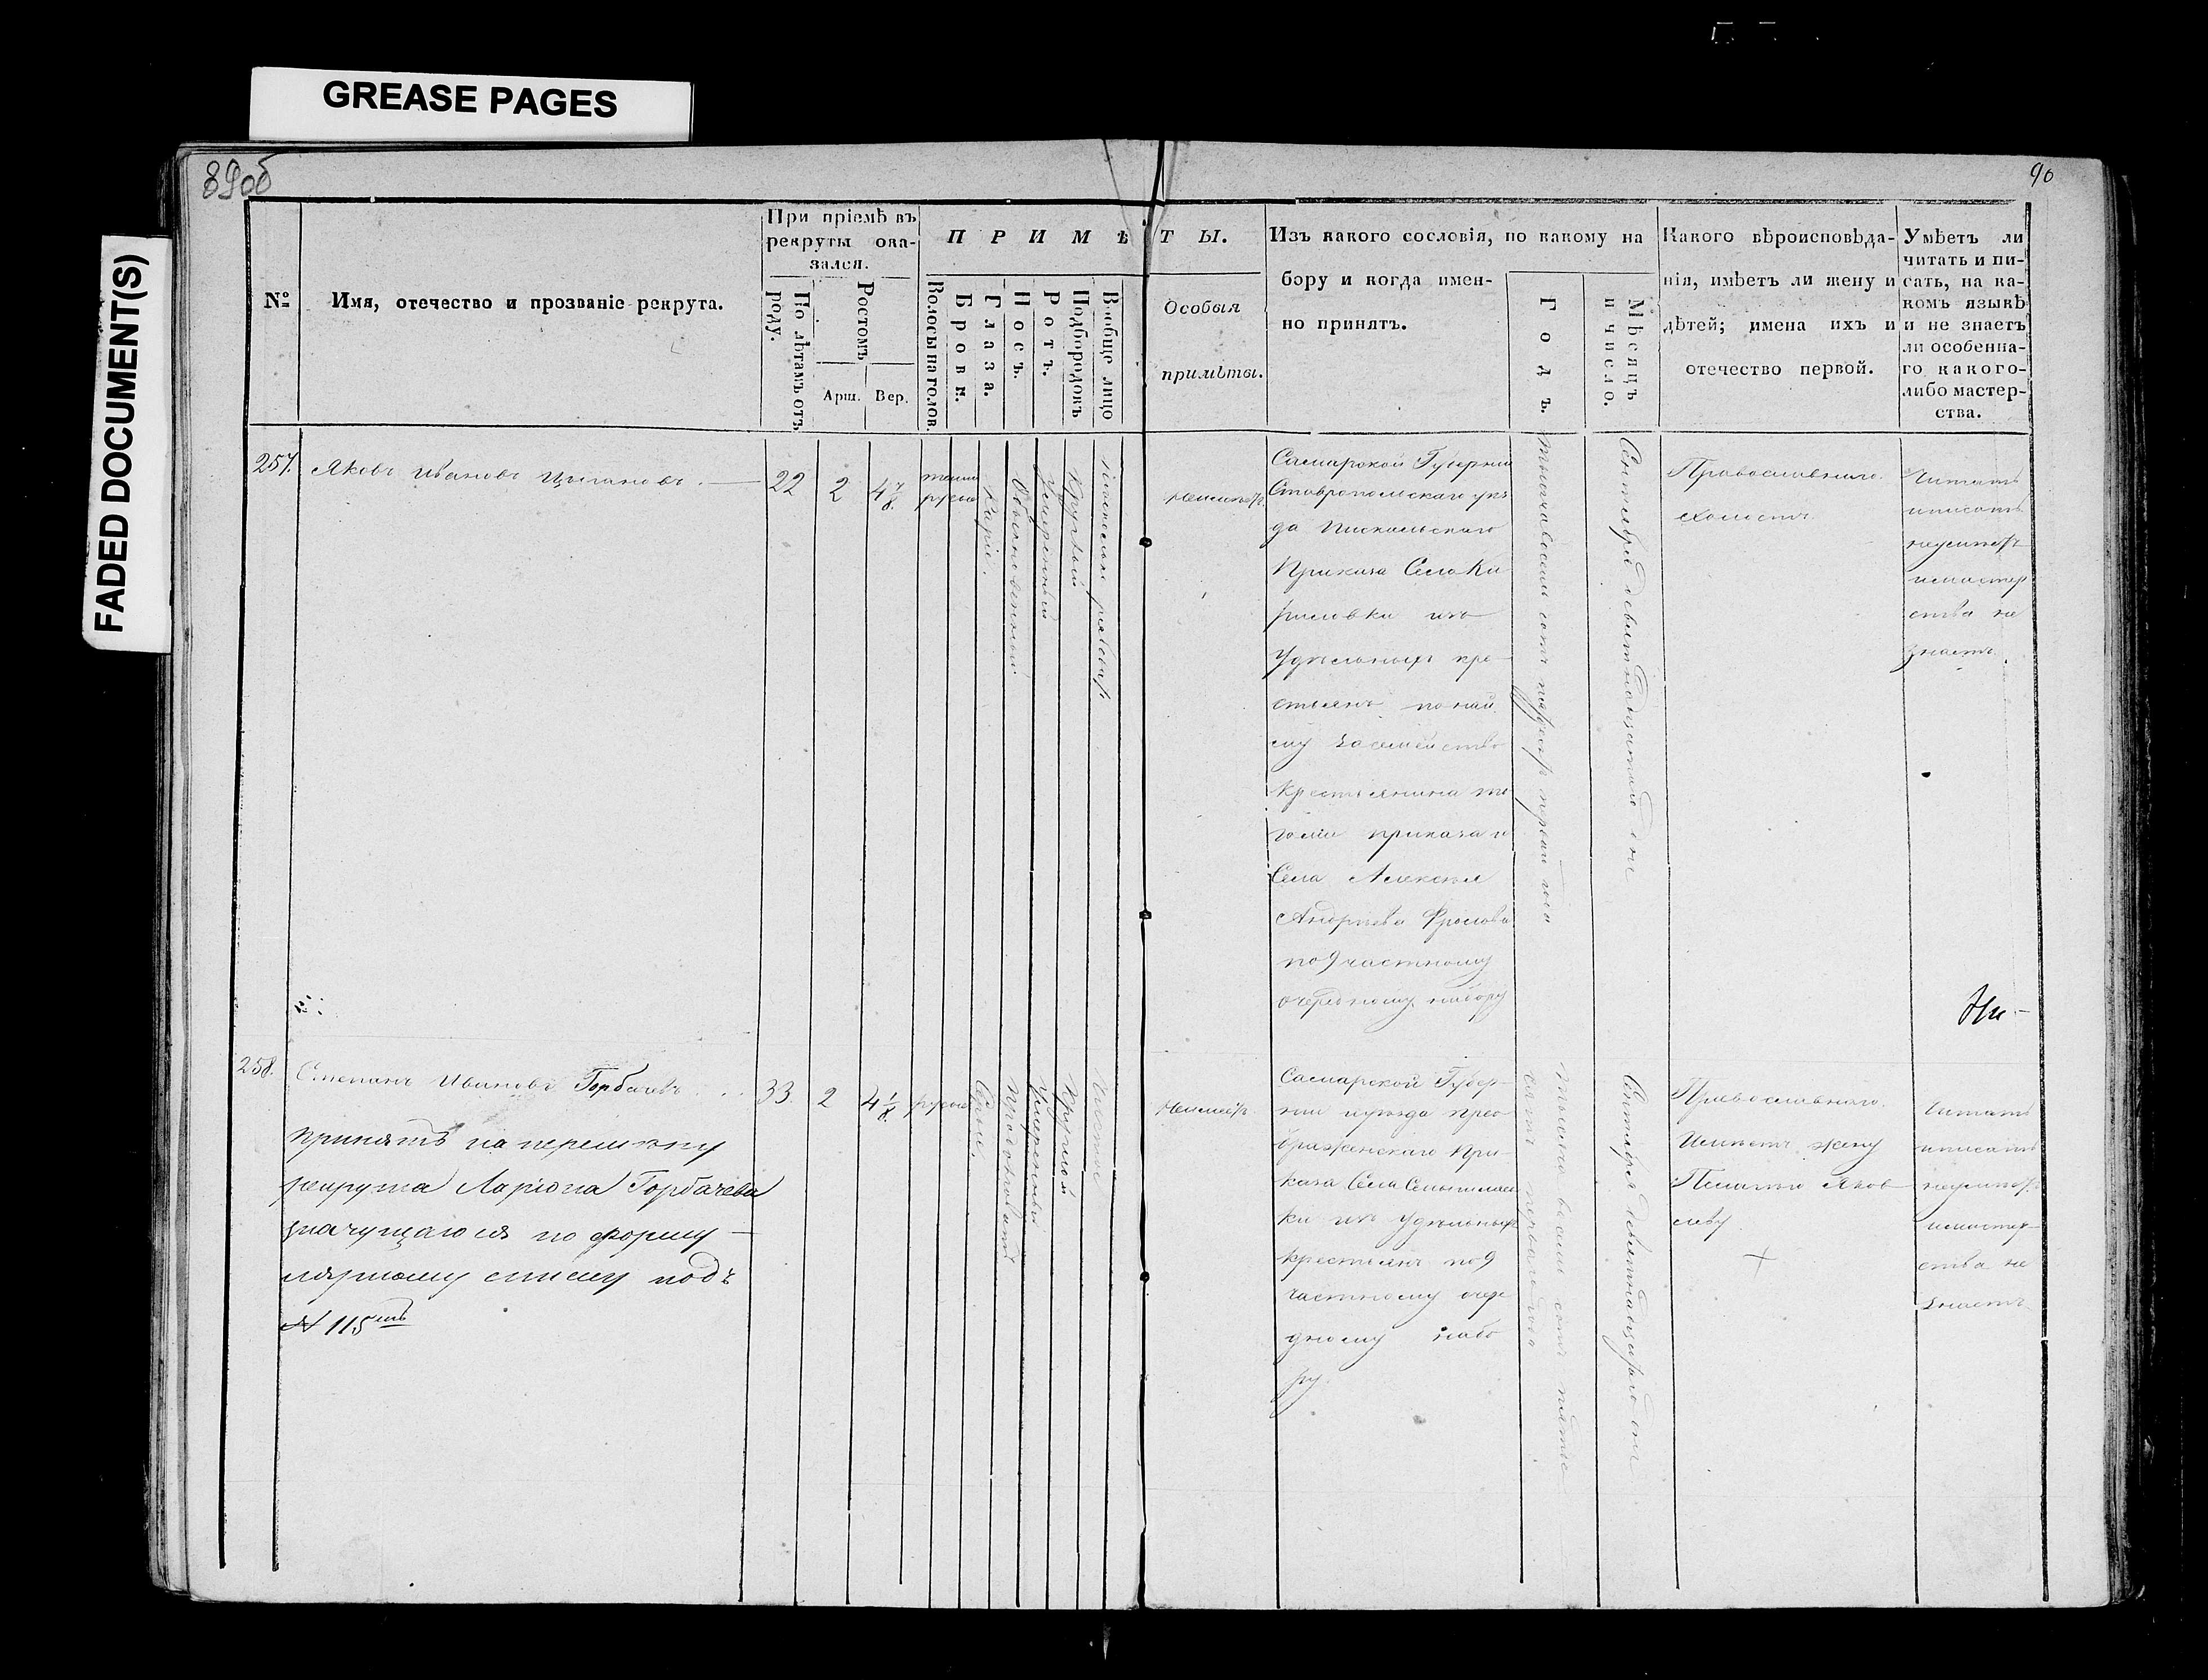 GREASE PAGES
FADED DOCUMENT(S)
89об
90
№
Имя, отечество и прозваніе рекрута.
При пріемѣ въ
рекруты ока-
зался.
По лѣтамъ отъ
роду.
Ростомъ
Арш.
Вер.
ПРИМѢТЫ.
Волосы на голов.
Брови.
Глаза.
Носъ.
Ротъ.
Подбородокъ
Вообще лицо
Особыя
примѣты.
Изъ какого сословія, по какому на
бору и когда имен-
но принятъ.
Годъ.
Мѣсяцъ
и число.
Какого вѣроисповѣда-
нія, имѣетъ ли жену и
дѣтей; имена ихъ и
отечество первой.
Умѣетъ ли
читать и пи-
сать, на ка-
комъ языкѣ
и не знаетъ
ли особенна-
го какого-
либо мастер-
ства.
257.
Яковъ Ивановъ Цыгановъ.
22
2
4 7/8
темно
русые
Каріе.
Обыкновенный.
Умѣренный
Круглый
Неимѣетъ
Самарской Губерніи
Ставропольскаго уѣз
да Пискальскаго
Приказа Села Ки
риловки изъ
Удѣльныхъ кре-
стьянъ по най
му за семейство
крестьянина то
гоже приказа и
Села Алексѣя
Андрѣева Фролова
по 9 частному
очередному набору
тысяча восемь сотъ пятдесятъ перваго года
Сентября девятнадцатаго дня
Православнаго.
Холостъ.
Читать
иписать
неумѣетъ
имастер
ства не
знаетъ.
Ни-
258.
Степанъ Ивановъ Горбачевъ. . .
принятъ на перемѣну
рекрута Ларіона Горбачева
значущагося по форму-
лярному списку подъ
№ 115мъ
33.
2
4 1/8
русые
Сѣрые.
Продолговатый
Умѣренный
Круглый
Чистое
Неимѣетъ
Самарской Губер-
ніи иуѣзда Прео-
браженскаго При-
каза Села
ки изъ Удѣльныхъ
крестьянъ по 9
частному очере
дному набо
ру.
тысяча восемь сотъ пятьде
сятъ перваго года
Сентября девятнадцатаго дня
Православнаго.
Имѣетъ жену
Пелагію Яков-
леву.
Читать
иписать
неумѣетъ
имастер-
ства не
знаетъ.